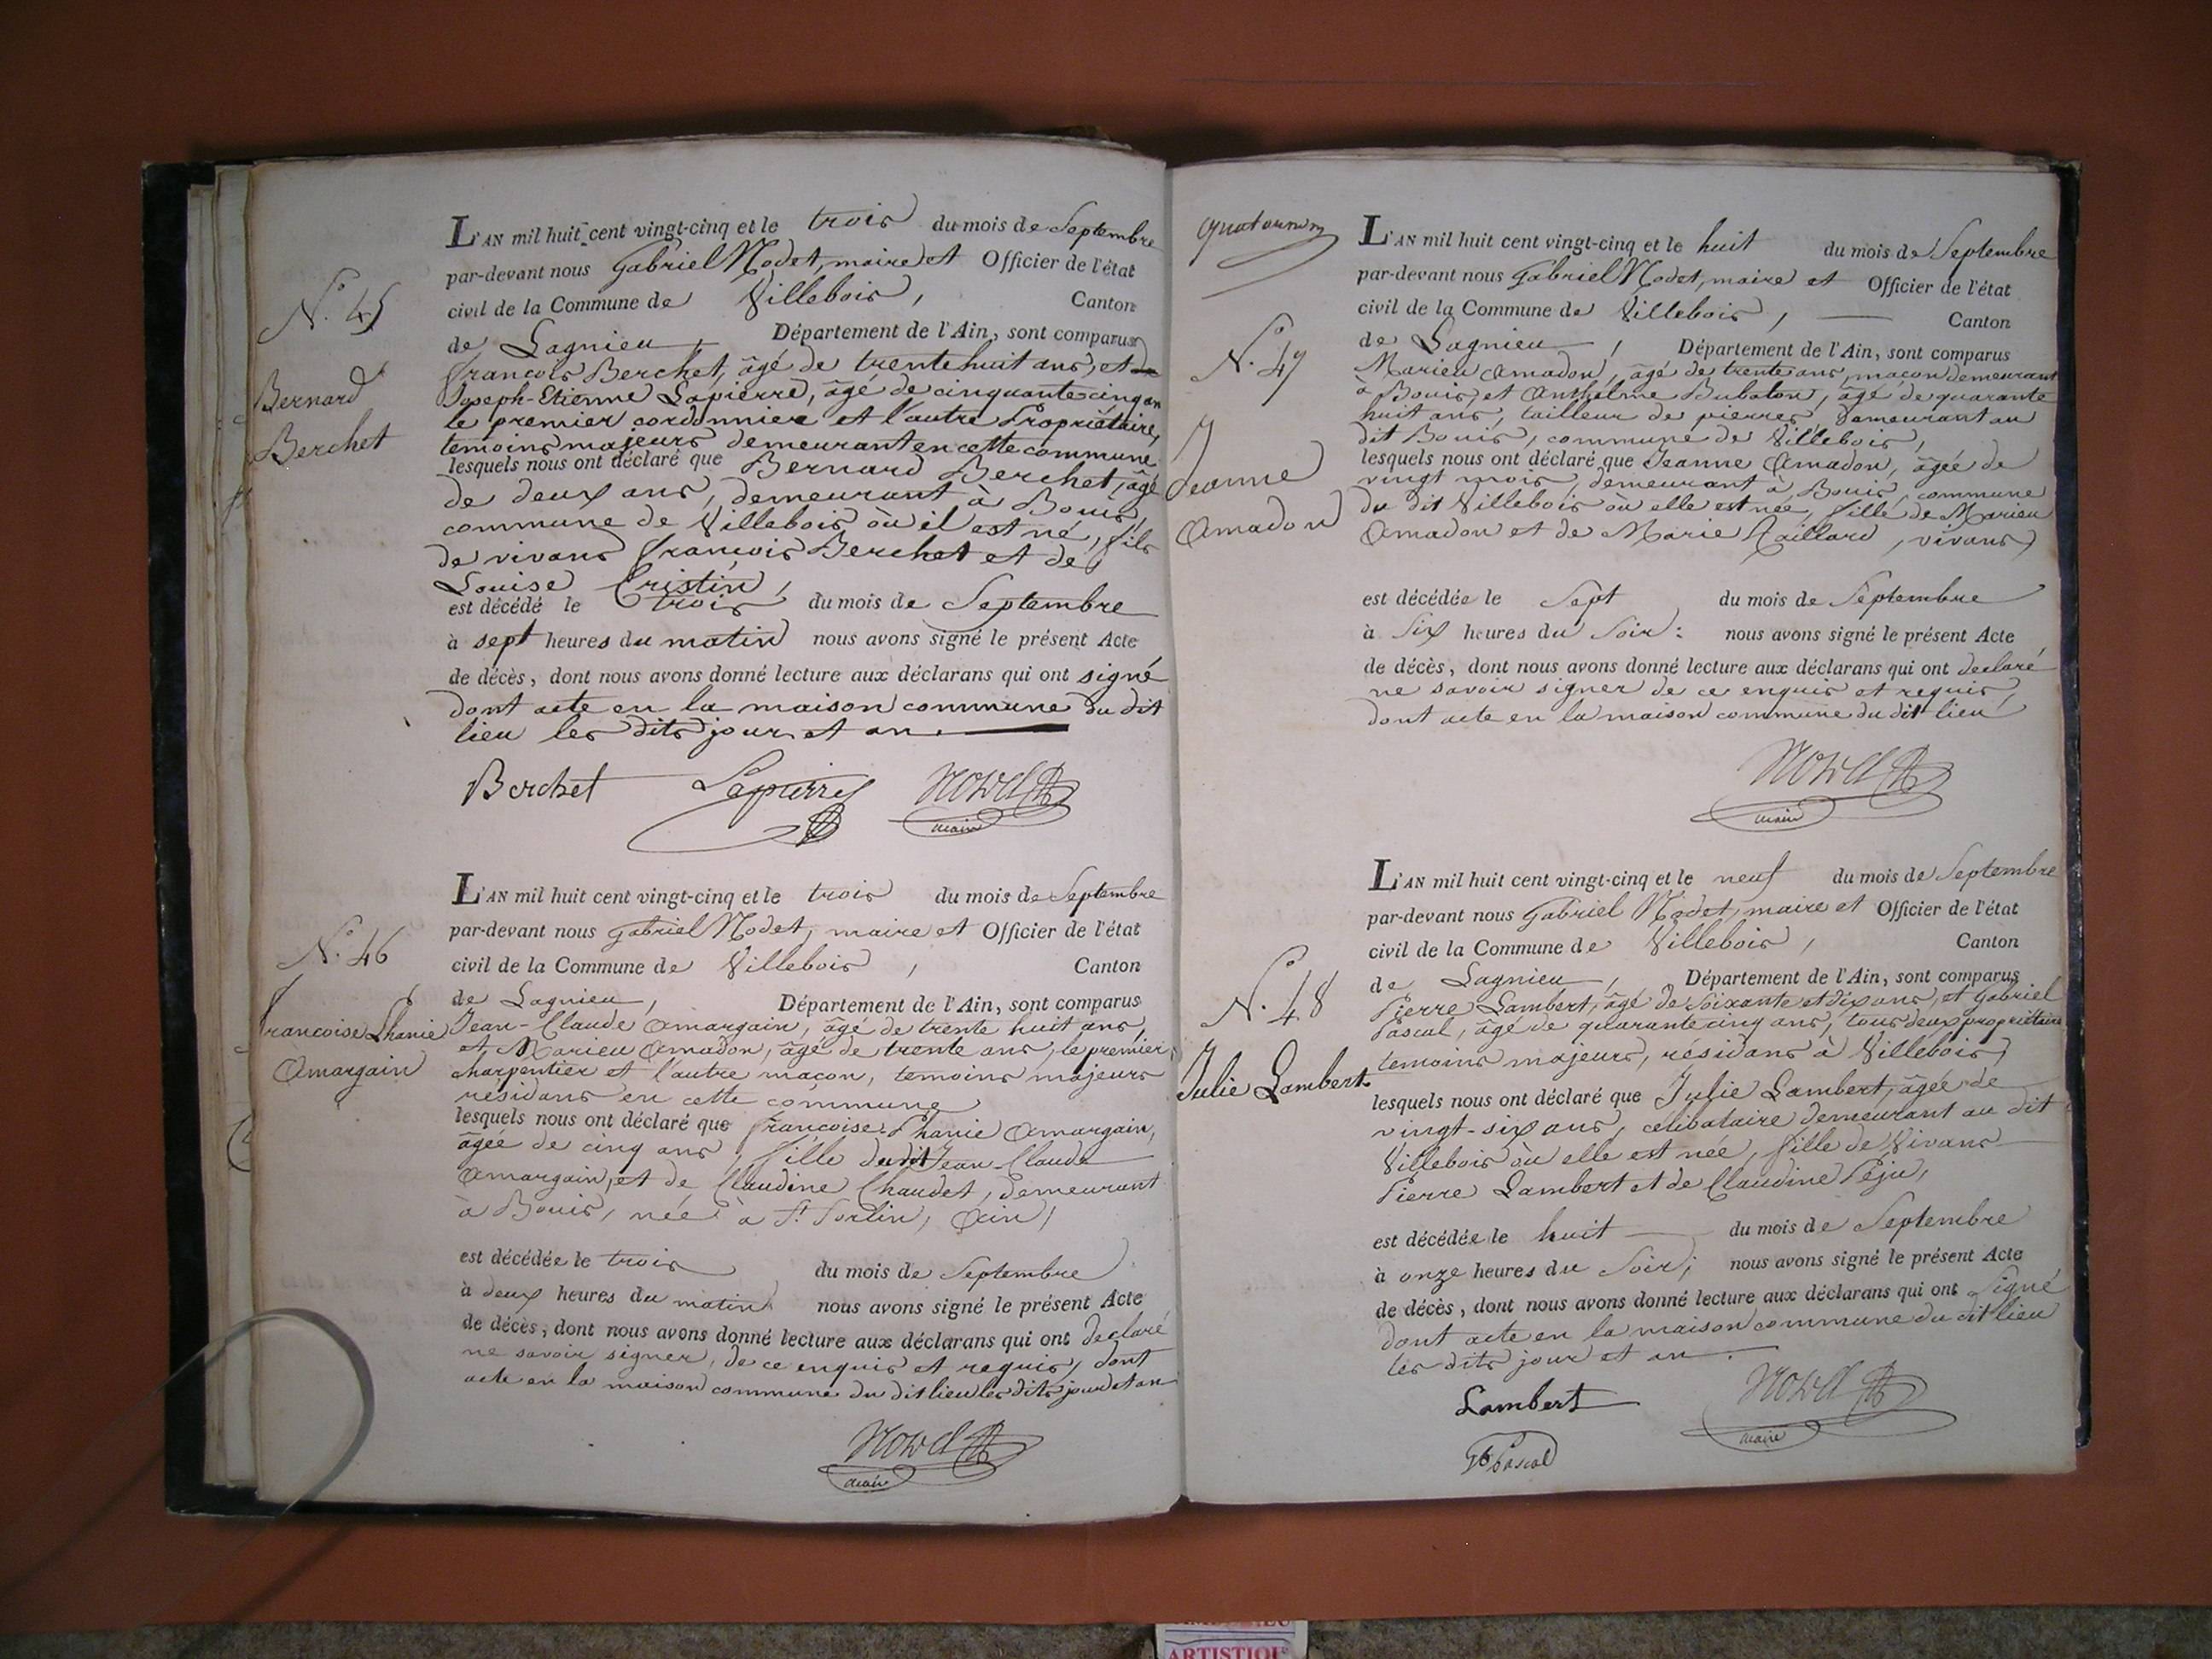 N.º 45
Bernard
Berchet
L'AN mil huit cent vingt-cinq et le trois du mois de Septembre
par-devant nous Gabriel Modet, maire et Officier de l'état
civil de la Commune de Villebois, Canton
de Lagnieu, Département de l'Ain, sont comparus
françois Berchet, âgé de trente huit ans, et
Joseph-Etienne Lapierre, âgé de cinquante cinq an
le premier cordonnier et l'autre Propriétaire,
temoins majeurs demeurant en cette commune
lesquels nous ont déclaré que Bernard Berchet, âgé
de deux ans, demeurant à Bouis,
commune de Villebois où il est né, fils
de vivans françois Berchet et de
Louise Cristin,
est décédé le trois du mois de Septembre
à sept heures du matin nous avons signé le présent Acte
de décès, dont nous avons donné lecture aux déclarans qui ont signé
dont acte en la maison commune du dit
lieu les dits jour et an.
Berchet Lapierre Modet
maire
N.º 46
francoise Phanie
Amargain
L'AN mil huit cent vingt-cinq et le trois du mois de Septembre
par-devant nous Gabriel Modet, maire et Officier de l'état
civil de la Commune de Villebois, Canton
de Lagnieu, Département de l'Ain, sont comparus
Jean-Claude Amargain, âgé de trente huit ans,
et Marieu Amadon, âgé de trente ans, le premier
charpentier et l'autre maçon, temoins majeurs
résidans en cette commune
lesquels nous ont déclaré que françoise-Phanie Amargain,
âgée de cinq ans, fille du dit Jean-Claude
Amargain, et de Claudine Chaudet, demeurant
à Bouis, née à St. Sorlin, Ain,
est décédée le trois du mois de Septembre
à deux heures du matin nous avons signé le présent Acte
de décès, dont nous avons donné lecture aux déclarans qui ont declaré
ne savoir signer, de ce enquis et requis, dont
acte en la maison commune du dit lieu les dits jour et an
Modet
maire
N.º 47
Jeanne
Amadon
L'AN mil huit cent vingt-cinq et le huit du mois de Septembre
par-devant nous Gabriel Modet, maire et Officier de l'état
civil de la Commune de Villebois, Canton
de Lagnieu, Département de l'Ain, sont comparus
Marieu Amadon, âgé de trente ans, maçon demeurant
à Bouis, et Anthelme Bubaton, âgé de quarante
huit ans, tailleur de pierres, demeurant au
dit Bouis, commune de Villebois,
lesquels nous ont déclaré que Jeanne Amadon, âgée de
vingt mois, demeurant à Bouis, commune
du dit Villebois où elle est née, fille de Marieu
Amadon et de Marie Gaillard, vivans,
est décédée le Sept du mois de Septembre
à Six heures du Soir: nous avons signé le présent Acte
de décès, dont nous avons donné lecture aux déclarans qui ont declaré
ne savoir signer de ce enquis et requis,
dont acte en la maison commune du dit lieu
Modet
maire
N.º 48
Julie Lambert
L'AN mil huit cent vingt-cinq et le neuf du mois de Septembre
par-devant nous Gabriel Modet, maire et Officier de l'état
civil de la Commune de Villebois, Canton
de Lagnieu, Département de l'Ain, sont comparus
Pierre Lambert, âgé de Soixante et dix ans, et Gabriel
Pascal, âgé de quarante cinq ans, tous deux propriétaires
temoins majeurs, résidans à Villebois,
lesquels nous ont déclaré que Julie Lambert, âgée de
vingt-six ans, celibataire demeurant au dit
Villebois où elle est née, fille de Vivans
Pierre Lambert et de Claudine Péju,
est décédée le huit du mois de Septembre
à onze heures du Soir; nous avons signé le présent Acte
de décès, dont nous avons donné lecture aux déclarans qui ont Signé
dont acte en la maison commune du dit lieu
les dits jour et an.
Lambert Modet
maire
Gb Pascal
ARTISTIQUE